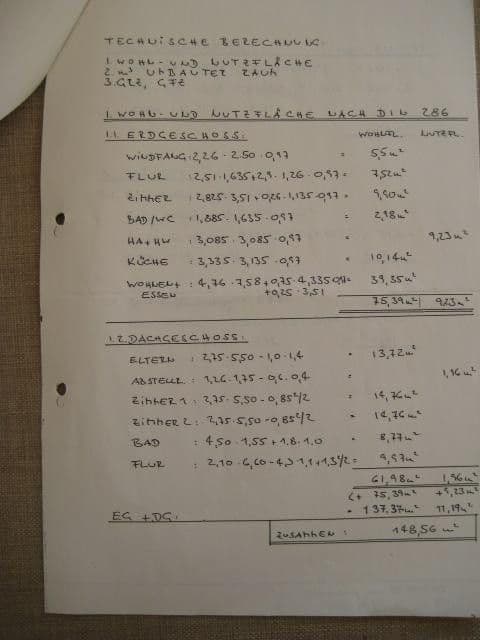 TECHNISCHE BERECHNUNG
1. WOHN- UND NUTZFLÄCHE
2. m³ UMBAUTER RAUM
3. GRZ, GFZ
1. WOHN- UND NUTZFLÄCHE NACH DIN 286
1.1. ERDGESCHOSS: WOHNFL. NUTZFL.
WINDFANG: 2,26 · 2.50 · 0,97 = 5,5 m²
FLUR : 2,51 · 1,635 + 2,9 · 1,26 · 0,97 = 7,52 m²
ZIMMER : 2,825 · 3,51 + 0,26 · 1,135 · 0,97 = 9,90 m²
BAD/WC : 1,885 · 1,635 · 0,97 = 2,98 m²
HA + HW : 3,085 · 3,085 · 0,97 = 9,23 m²
KÜCHE : 3,335 · 3,135 · 0,97 = 10,14 m²
WOHNEN + : 4,76 · 7,58 + 0,75 · 4,335 0,97 = 39,35 m²
ESSEN + 0,25 · 3,51
75,39 m² 9,23 m²
1.2. DACHGESCHOSS:
ELTERN : 2,75 · 5,50 - 1,0 · 1,4 = 13,72 m²
ABSTELLR. : 1,26 · 1,75 - 0,6 · 0,4 = 1,96 m²
ZIMMER 1 : 2,75 · 5,50 - 0,85²/2 = 14,76 m²
ZIMMER 2 : 2,75 · 5,50 - 0,85²/2 = 14,76 m²
BAD : 4,50 · 1,55 + 1.8 · 1.0 = 8,77 m²
FLUR : 2,10 · 6,60 - 4,3 · 1,1 + 1,3²/2 = 9,97 m²
61,98 m² 1,96 m²
(+ 75,39 m² + 9,23 m²
EG + DG: = 137,37 m² 11,19 m²
ZUSAMMEN : 148,56 m²